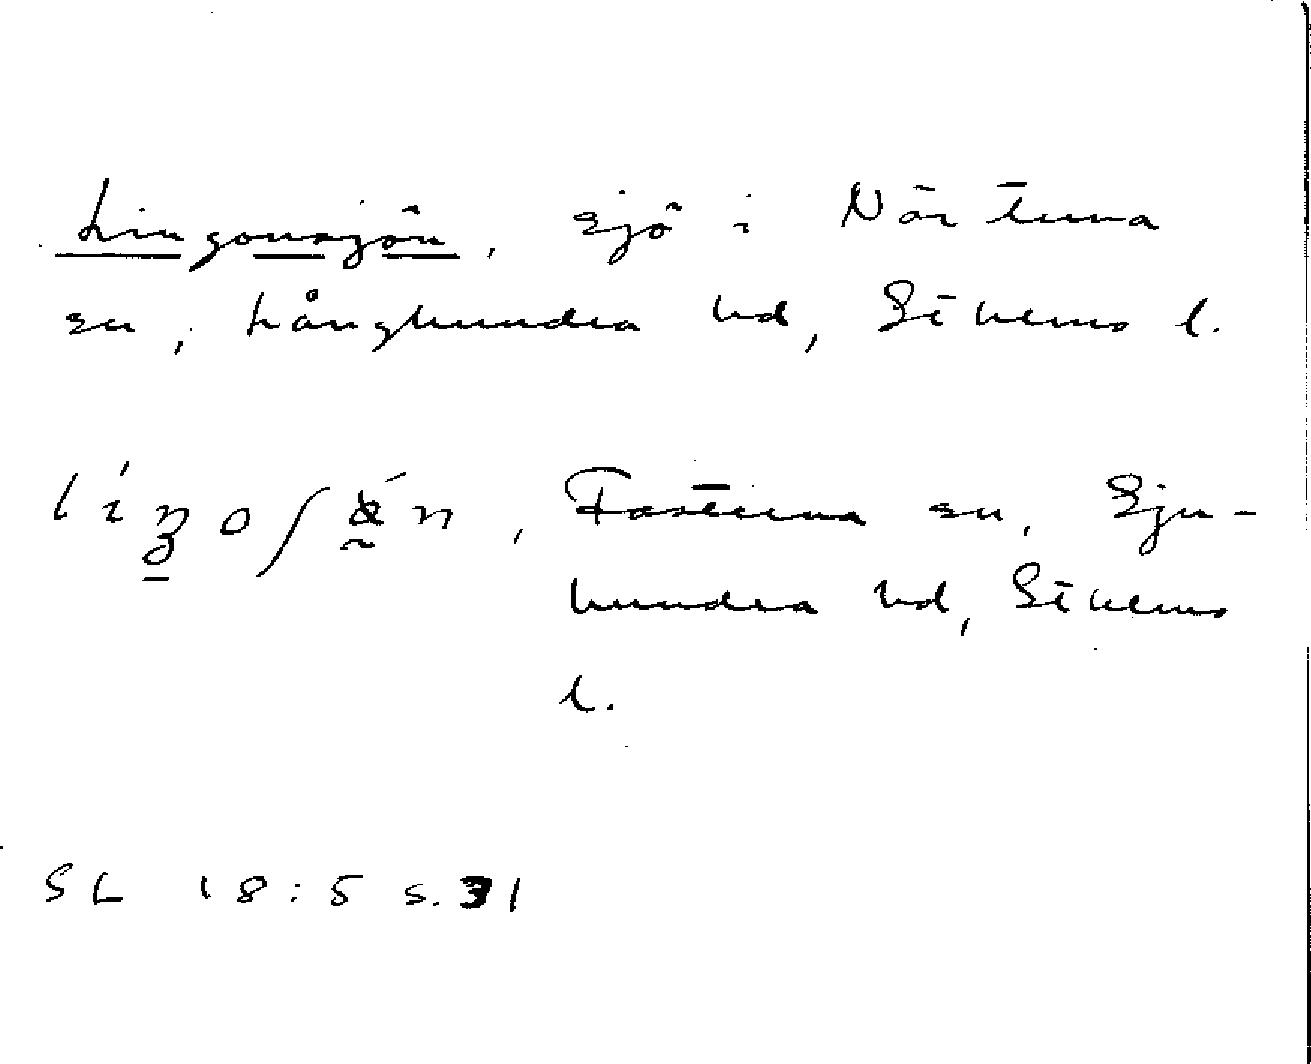 Lingonsjön, sjö i Närtuna
sn, Långhundra hd, Sthlms l.
Fasterna sn, Sju-
hundra hd, Sthlms
l.
SL 18:5 s. 31